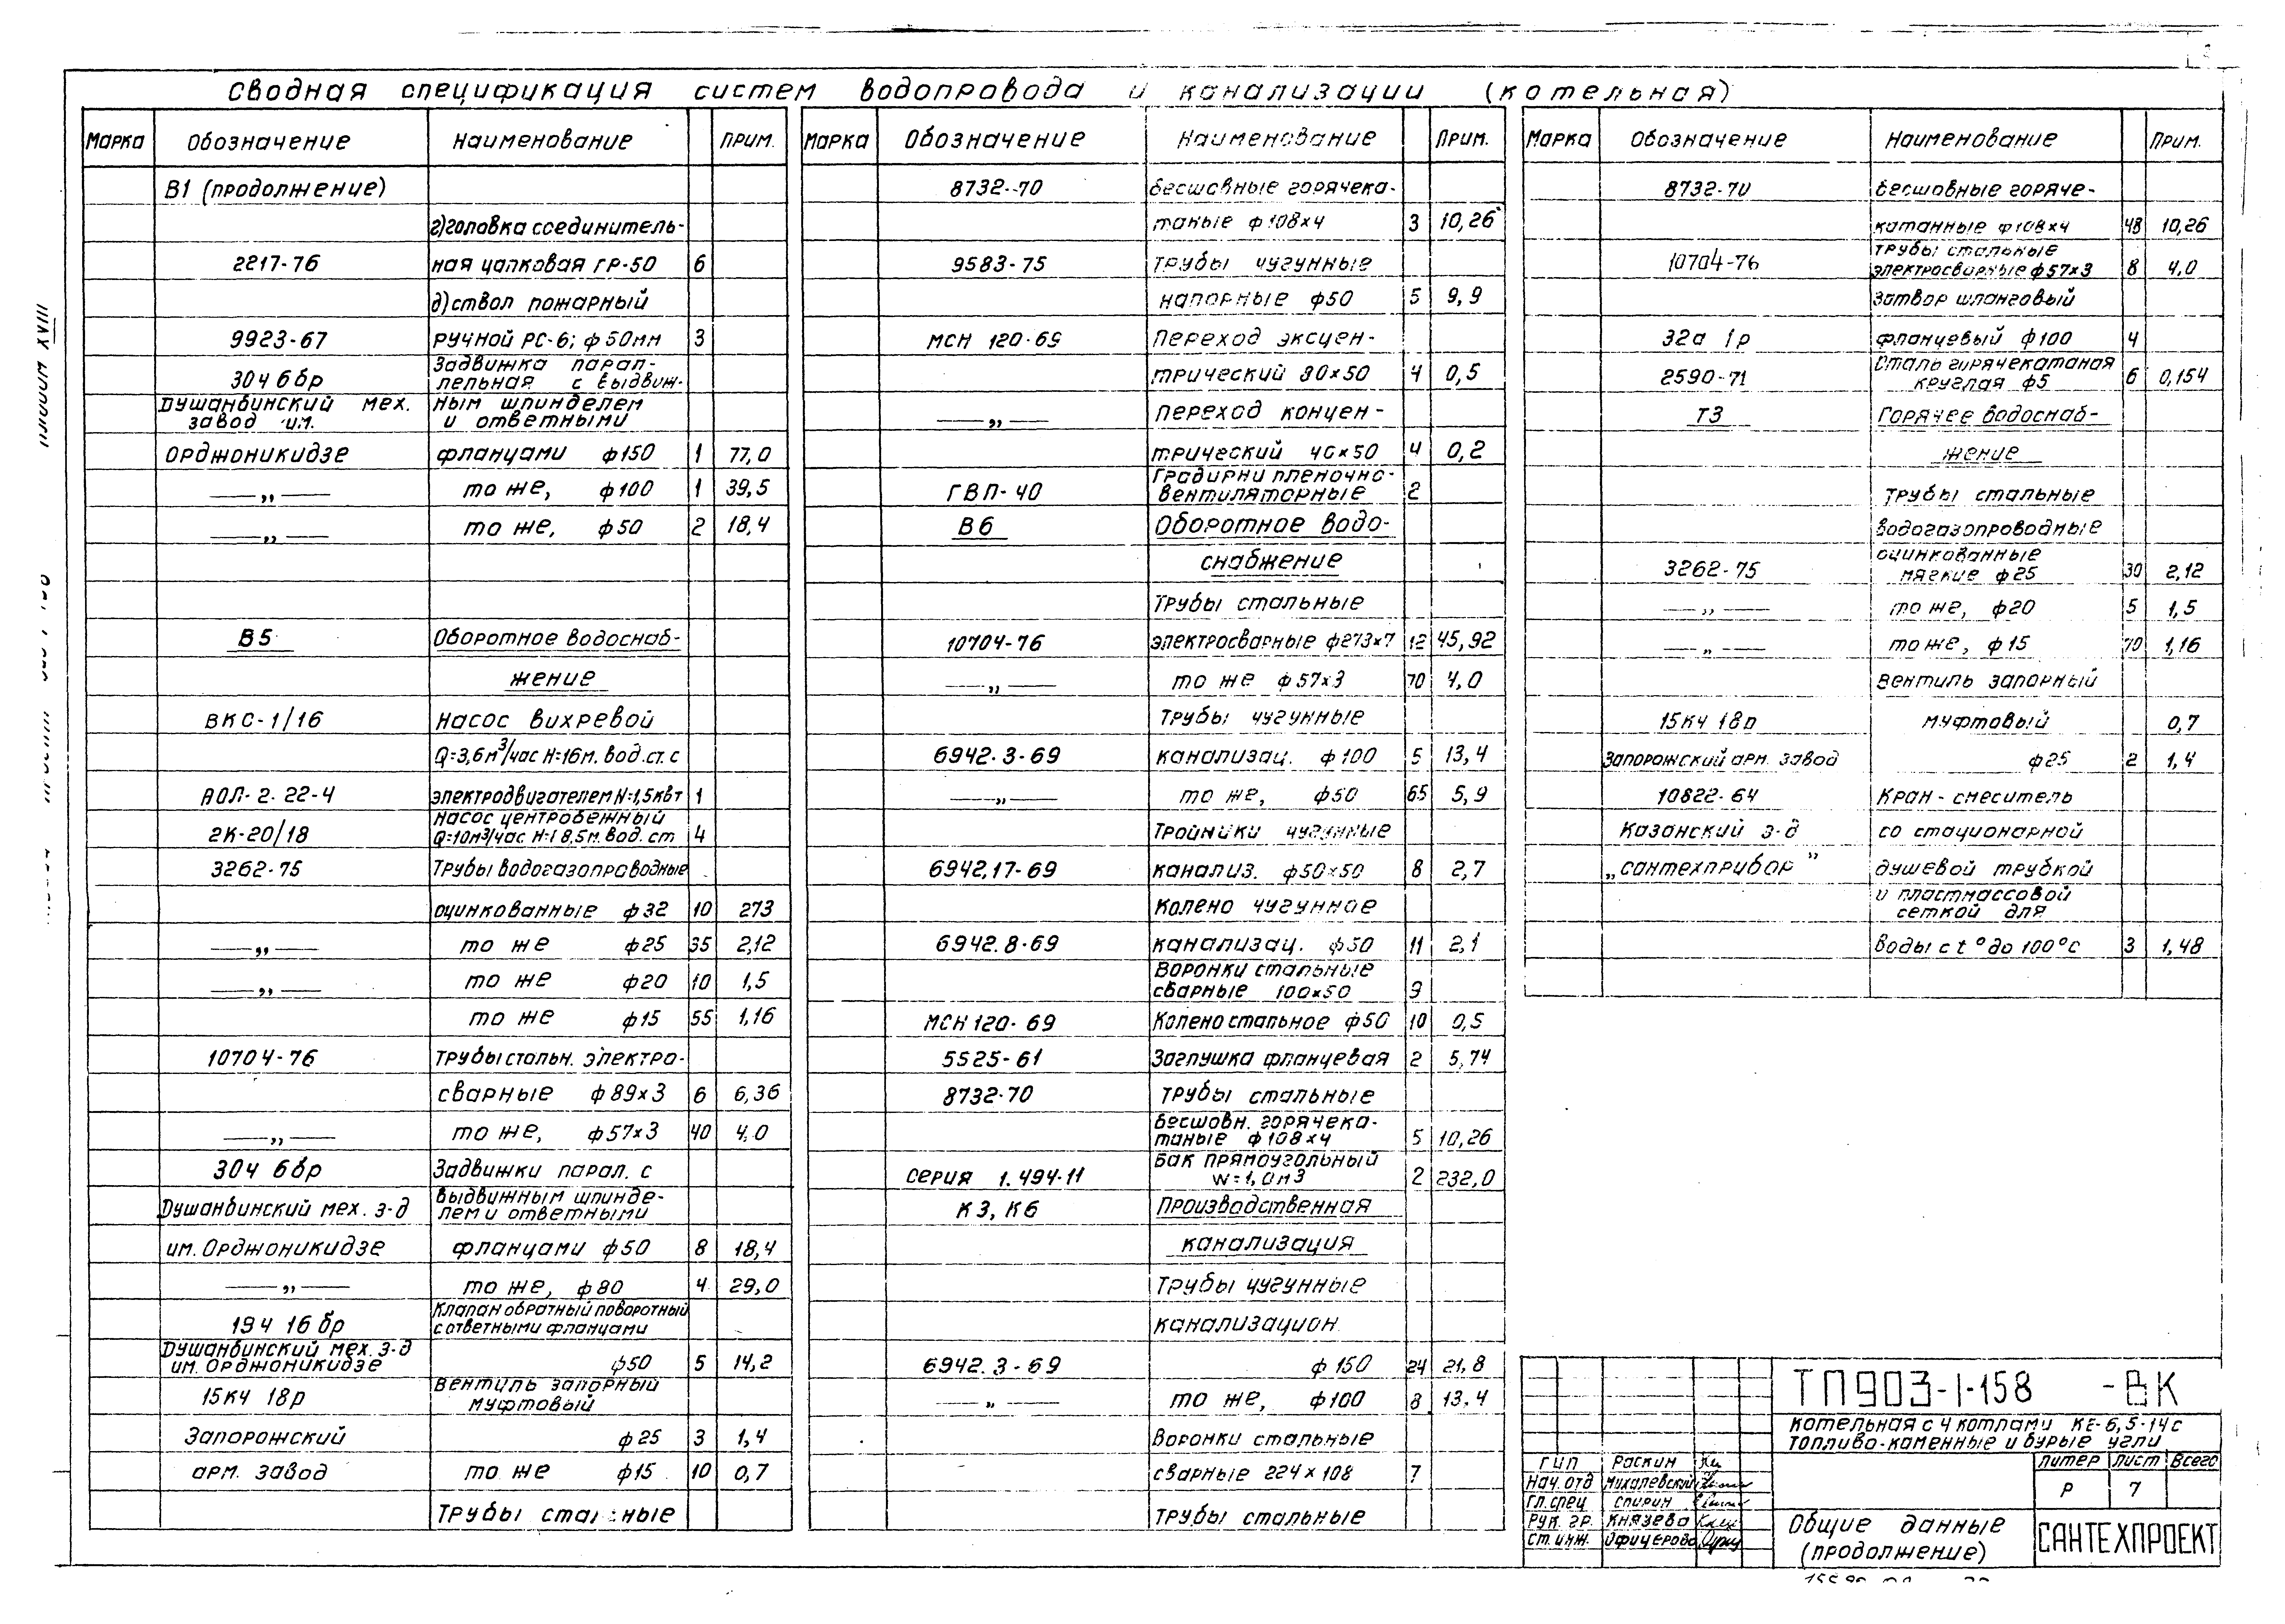 Сводная спецификация систем водопровода и канализации (котельная)
Марка Обозначение Наименование Прим.
В1 (продолжение)
г) головка соединитель-
2217-76 ная цапковая ГР-50 6
д) ствол пожарный
9923-67 ручной РС-6; ф 50мм 3
Задвижка парал-
30ч 6бр лельная с выдвиж-
Душанбинский мех. ным шпинделем
завод им. и ответными
Орджоникидзе фланцами ф150 1 77,0
—„— то же, ф100 1 39,5
—„— то же, ф50 2 18,4
В5 Оборотное водоснаб-
жение
ВКС-1/16 Насос вихревой
Q=3,6м³/час Н=16м. вод.ст. с
АОЛ-2. 22-4 электродвигателем N=1,5квт 1
Насос центробежный
2К-20/18 Q=10м3/час Н=18,5м. вод. ст 4
3262-75 Трубы водогазопроводные
оцинкованные ф32 10 273
—„— то же ф25 35 2,12
—„— то же ф20 10 1,5
то же ф15 55 1,16
10704-76 Трубы стальн. электро-
сварные ф89х3 6 6,36
—„— то же, ф57х3 40 4,0
30ч 6бр Задвижки парал. с
выдвижным шпинде-
Душанбинский мех. з-д лем и ответными
им. Орджоникидзе фланцами ф50 8 18,4
—„— то же, ф80 4 29,0
Клапан обратный поворотный
19ч 16бр с ответными фланцами
Душанбинский мех. з-д
им. Орджоникидзе ф50 5 14,2
Вентиль запорный
15кч 18р муфтовый
Запорожский ф25 3 1,4
арм. завод то же ф15 10 0,7
Трубы стальные
Марка Обозначение Наименование Прим.
8732-70 бесшовные горячека-
таные ф108х4 3 10,26
9583-75 Трубы чугунные
напорные ф50 5 9,9
МСН 120-69 Переход эксцен-
трический 80х50 4 0,5
—„— переход концен-
трический 40х50 4 0,2
Градирни пленочно-
ГВП-40 вентиляторные 2
В6 Оборотное водо-
снабжение
Трубы стальные
10704-76 электросварные ф273х7 12 45,92
—„— то же ф57х3 70 4,0
Трубы чугунные
6942.3-69 канализац. ф100 5 13,4
—„— то же, ф50 65 5,9
Тройники чугунные
6942.17-69 канализ. ф50х50 8 2,7
Колено чугунное
6942.8-69 канализац. ф50 11 2,1
Воронки стальные
сварные 100х50 9
МСН 120-69 Колено стальное ф50 10 0,5
5525-61 Заглушка фланцевая 2 5,74
8732-70 Трубы стальные
бесшовн. горячека-
таные ф108х4 5 10,26
Бак прямоугольный
Серия 1.494-11 W=1,0м3 2 232,0
К3, К6 Производственная
канализация
Трубы чугунные
канализацион.
6942.3-69 ф150 24 21,8
—„— то же, ф100 8 13,4
Воронки стальные
сварные 224х108 7
Трубы стальные
Марка Обозначение Наименование Прим.
8732-70 бесшовные горяче-
катанные ф108х4 48 10,26
Трубы стальные
10704-76 электросварные ф57х3 8 4,0
Затвор шланговый
32а 1р фланцевый ф100 4
Сталь горячекатаная
2590-71 круглая ф5 6 0,154
Т3 Горячее водоснаб-
жение
Трубы стальные
водогазопроводные
оцинкованные
3262-75 мягкие ф25 30 2,12
—„— то же, ф20 5 1,5
—„— то же, ф15 70 1,16
Вентиль запорный
15кч 18р муфтовый 0,7
Запорожский арм. завод ф25 2 1,4
10822-64 Кран-смеситель
Казанский з-д со стационарной
„сантехприбор" душевой трубкой
и пластмассовой
сеткой для
воды с t° до 100°с 3 1,48
ТП903-1-158 -ВК
Котельная с 4 котлами КЕ-6,5-14с
Топливо-каменные и бурые угли
Литер Лист Всего
Р 7
ГИП Раскин
Нач. отд Михалевский
Гл.спец Спирин
Рук. гр. Князева
Ст. инж. Офицерова
Общие данные
(продолжение)
САНТЕХПРОЕКТ
XVIII